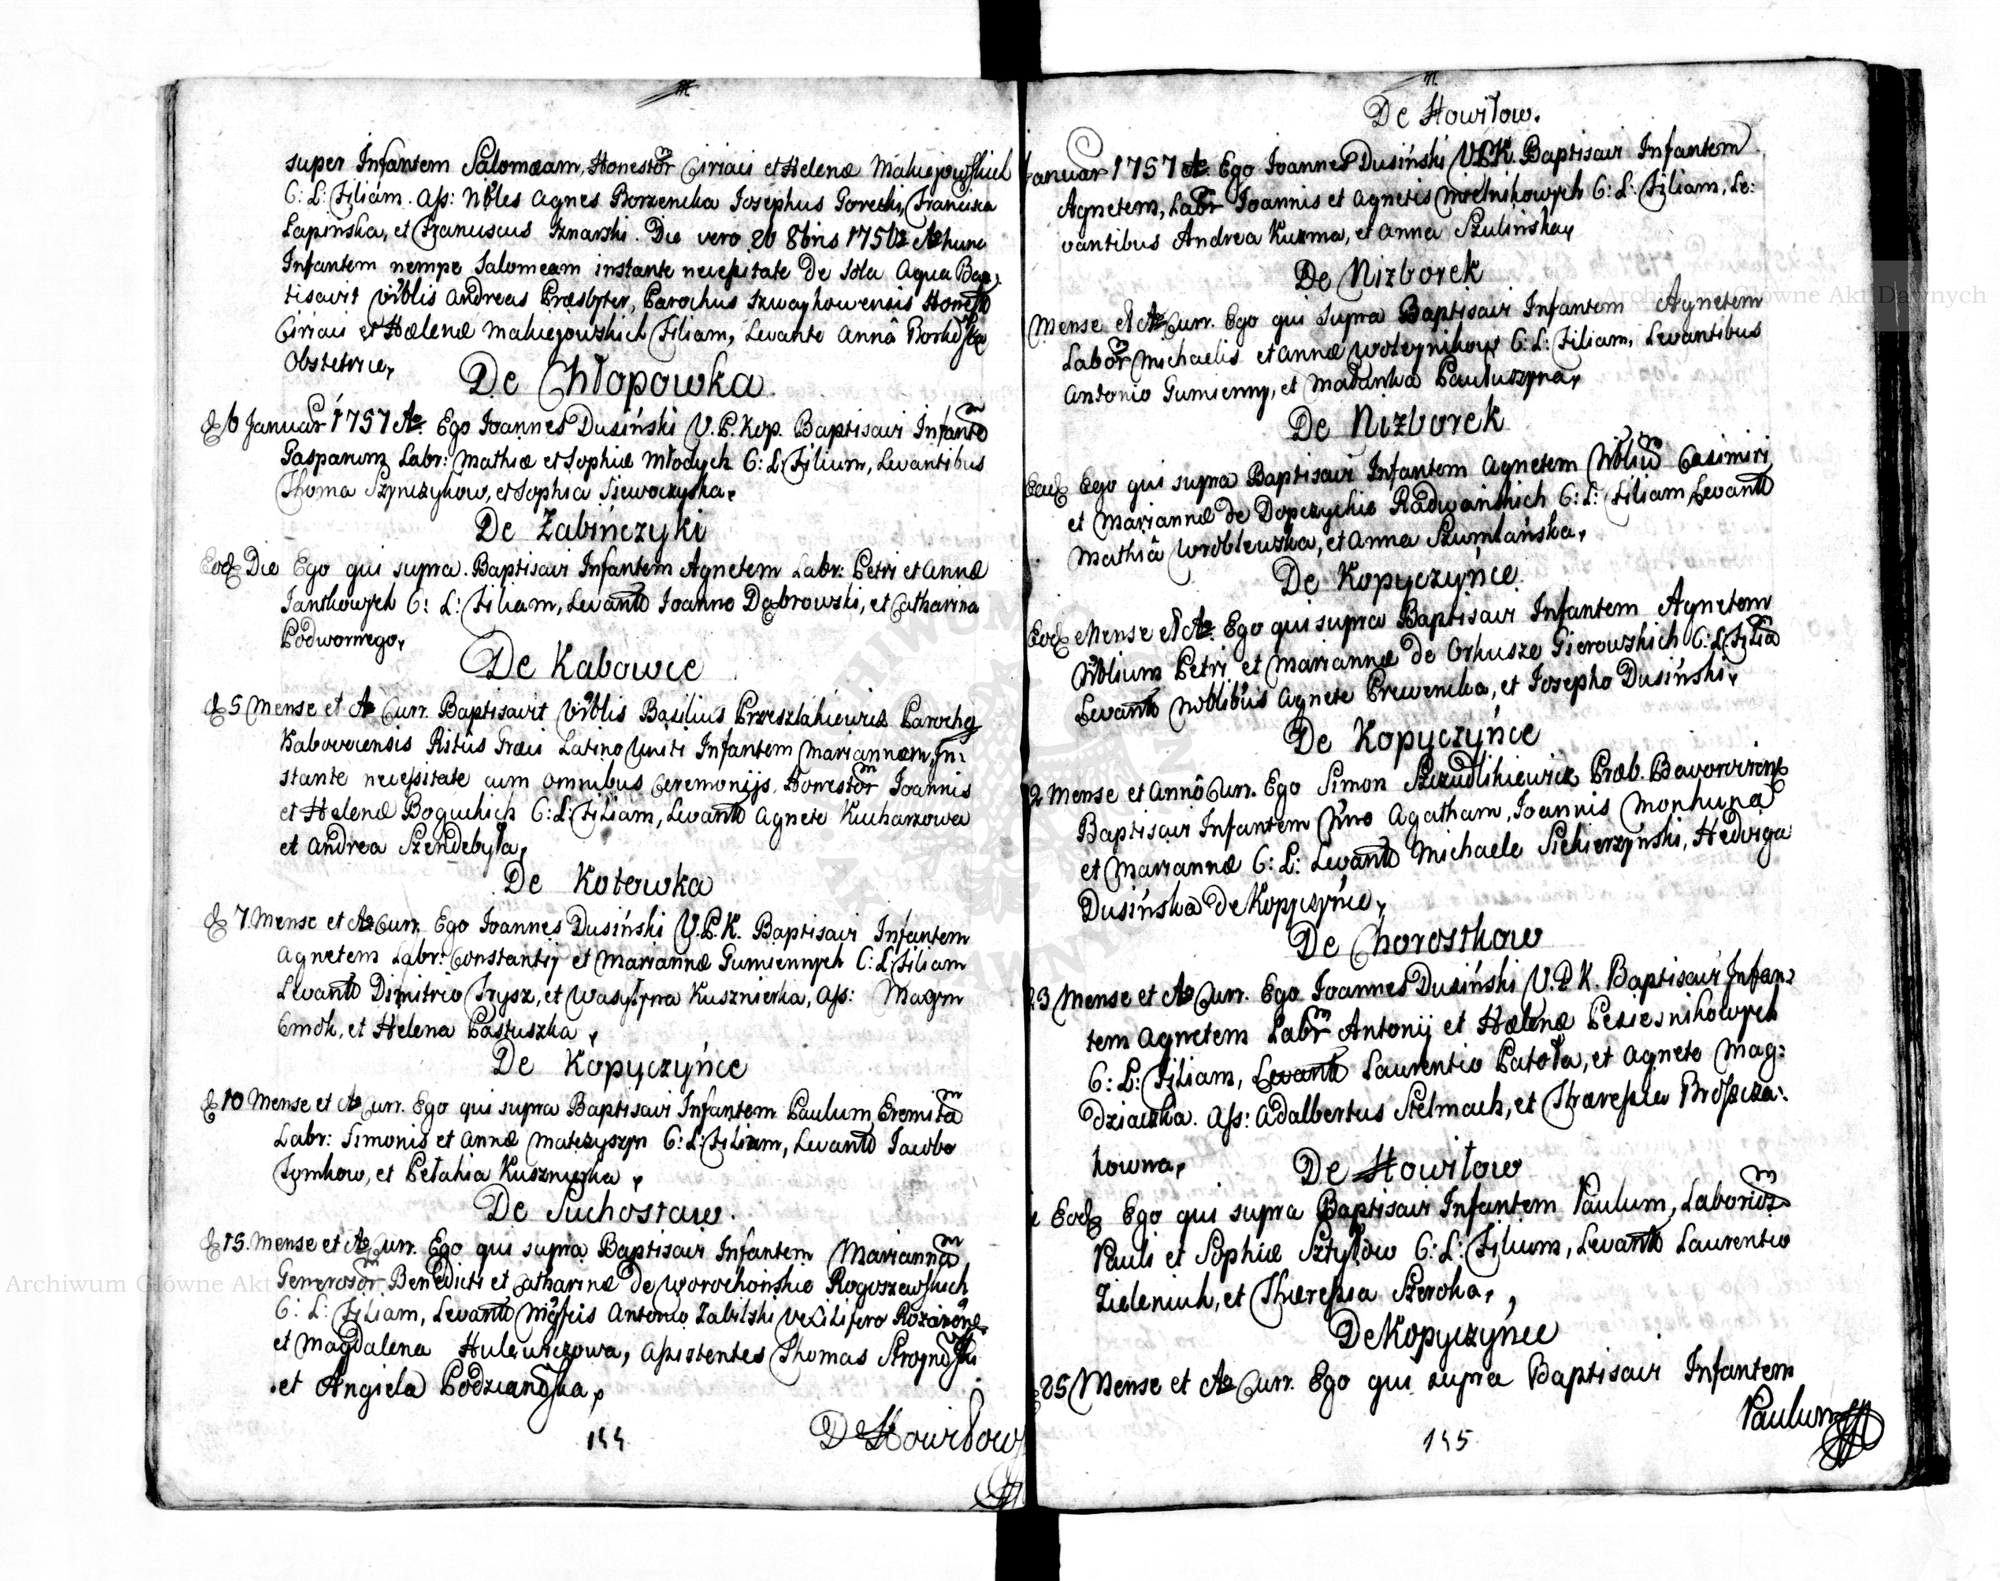 super Infantem Salomeam, Honestor Ciriaci et Helenæ Maluejowskich
C: L: Filiam. Ass: Nbles Agnes Borzencka Josephus Gorecki, Francisca
Lapinska, et Franciscus Die vero 20 8bris 1756 Ao hunc
Infantem nempe Salomeam instante necessitate de sola Aqua Bap:
tisavit Vrblis Andreas Præsbyter, Parochus Szwaykowensis Honest
Ciriaci et Hælenæ Maluejowskich Filiam, Levante Annâ
Obstetrice,
De Chłopowka
d 6 Januar 1757 Ao. Ego Joannes Dusiński V.P. Kop. Baptisavi Infante
Gasparum Labr: Mathiæ et Sophiæ Młodych C: L: Filium, Levantibus
Thoma Szynczykow, et Sophia Siewoczyska.
De Zabińczyki
Eod Die Ego qui supra. Baptisavi Infantem Agnetem Labr: Petri et Annæ
Jantkowych C: L: Filiam, Levant Joanne Dąbrowski, et Catharina
Podwornego,
De Kabowce
d 5 Mense et Ao Curr. Baptisavit Vrblis Basilius Przeszlakiewicz Paroch
Kabovecensis Ritûs Græci Latino Uniti Infantem Mariannam, In:
stante necessitate cum omnibus Ceremonijs. Honestor Joannis
et Helenæ Boguckich C: L: Filiam, Levant Agnete Kucharzowa
et Andrea Szendebyła,
De Kotowka
d 7 Mense et Ao Curr. Ego Joannes Dusiński V.P.K. Baptisavi Infantem
Agnetem Labr: Constantij et Mariannæ Gumiennych C: L: Filiam
Levant Dimitrio Trysz, et Wasylyna Kusznierka, Ass:
et Helena Pastuszka,
De Kopyczyńce
d 10 Mense et Ao Curr. Ego qui supra Baptisavi Infantem Paulum Eremita
Labr: Simonis et Annæ Matczyszyn C: L: Filium, Levant Jacobo
Tymkow, et Pełahia Kusznierka,
De Suchostaw.
d 15. Mense et Ao Curr. Ego qui supra Baptisavi Infantem Marianna
Generosor Benedicti et Catharinæ de Worochońskie Rogoszewskich
C: L: Filiam, Levant Antonio Zabilski Vexilifero
et Magdalena Hulewiczowa, Assistentes Thomas
et Angiela Podzianska,
144
De Howiłow
De Howiłow.
Januar 1757 Ao. Ego Joannes Dusiński V.P.K. Baptisavi Infantem
Agnetem, Labr Joannis et Agnetis Mielnikowych C: L: Filiam, Le:
vantibus Andrea Kuzma, et Anna Szulinska,
De Nizborek
Mense et Ao Curr. Ego qui supra Baptisavi Infantem Agnetem
Labor Michaelis et Annæ Woteynikow C: L: Filiam, Levantibus
Antonio Gumienny, et Malanka Pauluszyna,
De Nizborek
Eod Ego qui supra Baptisavi Infantem Agnetem Casimiri
et Mariannæ de Dopczychie Radwańskich C: L: Filiam Levant
Mathiâ Wroblewska, et Anna Szumlańska,
De Kopyczyńce
Eod Mense et Ao. Ego qui supra Baptisavi Infantem Agnetem
Petri et Mariannæ de Orkusze Gierowskich C: L: Filia
Levant Agnete Prewencka, et Josepho Dusiński,
De Kopyczyńce
2 Mense et Annô Curr. Ego Simon Szczudlikiewicz Præb.
Baptisavi Infantem Nõe Agatham, Joannis Monhuna
et Mariannæ C: L: Levant Michaele Siekierzynski, Hedviga
Dusińska de Kopyczyńce,
De Chorostkow
23 Mense et Ao Curr. Ego Joannes Dusiński V.P.K. Baptisavi Infan:
tem Agnetem Labr Antonij et Hælenæ Peziesnikowych
C: L: Filiam, Levant Laurentio Patoła, et Agnete Mag:
dziaczka. Ass: Adalbertus Stelmach, et Thæressia
kowna,
De Howiłow
Eod Ego qui supra Baptisavi Infantem Paulum, Labor
Pauli et Sophiæ Sztyłow C: L: Filium, Levant Laurentio
Zieleniuk, et Thæressia Szeroka,
De Kopyczyńce
25 Mense et Ao Curr. Ego qui supra Baptisavi Infantem
Paulum
145
Archiwum Główne Akt Dawnych
Archiwum Główne Akt